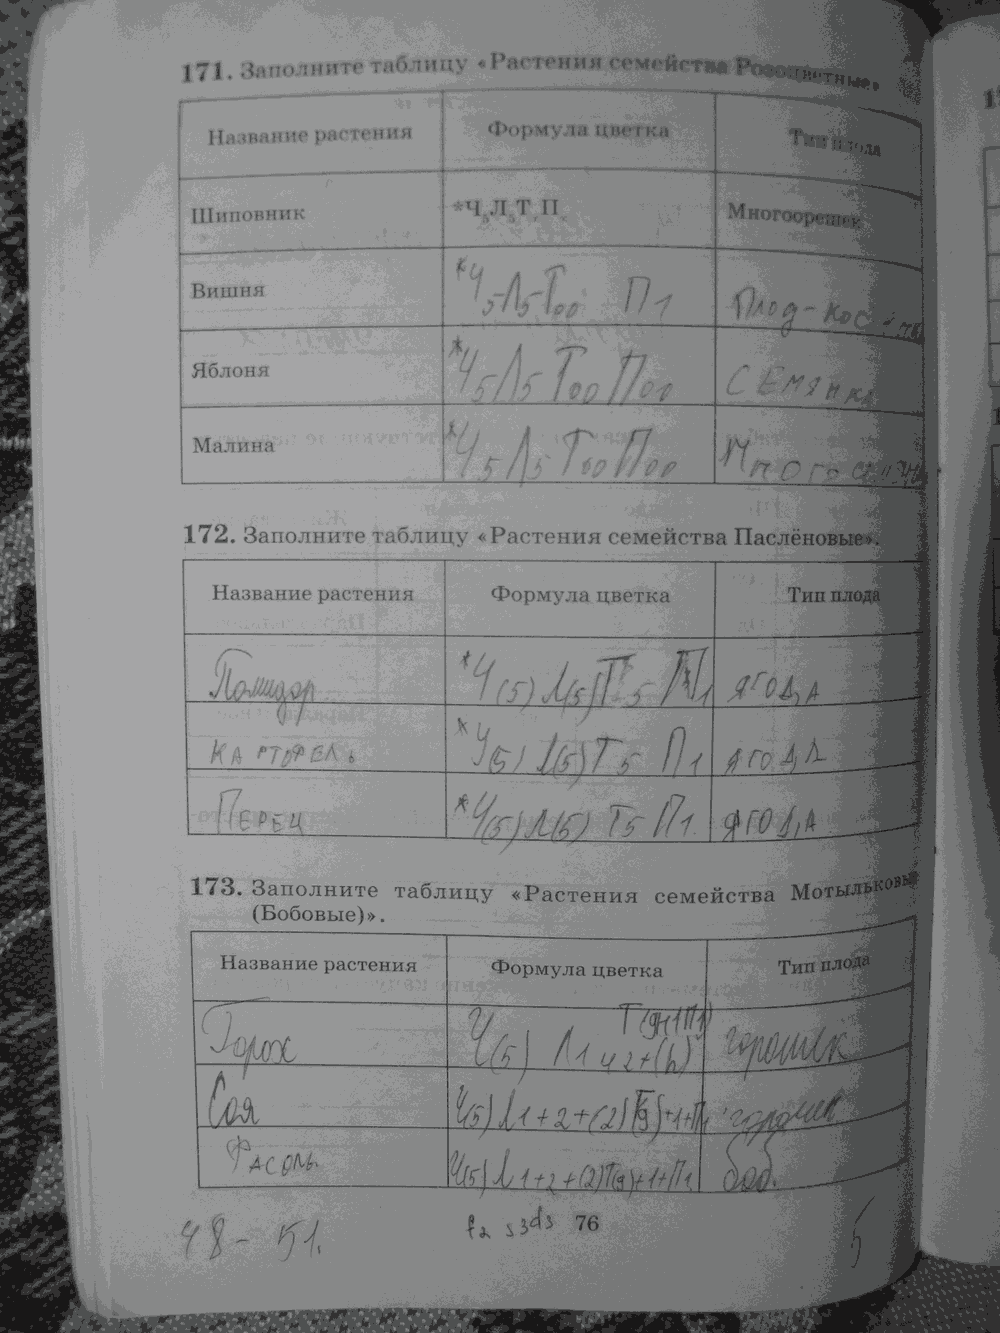 171. Заполните таблицу «Растения семейства Розоцветные».
Название растения Формула цветка Тип плода
Шиповник *Ч5Л5Т П Многоорешек
Вишня *Ч5Л5Т∞ П1 Плод-
Яблоня *Ч5Л5Т∞П∞ СЕМЯНКА
Малина *Ч5Л5Т∞П∞
172. Заполните таблицу «Растения семейства Паслёновые».
Название растения Формула цветка Тип плода
Помидор *Ч(5)Л(5)Т5 П1 ЯГОДА
КАРТОФЕЛЬ *Ч(5)Л(5)Т5 П1 ЯГОДА
ПЕРЕЦ *Ч(5)Л(5)Т5 П1 ЯГОДА
173. Заполните таблицу «Растения семейства Мотыльковые
(Бобовые)».
Название растения Формула цветка Тип плода
Горох Ч(5) Л1 горошек
Соя Ч(5)Л1+2+(2)Т(9)+1+П1
ФАСОЛЬ Ч(5)Л1+2+(2)Т(9)+1+П1 боб.
48-51. 76 5